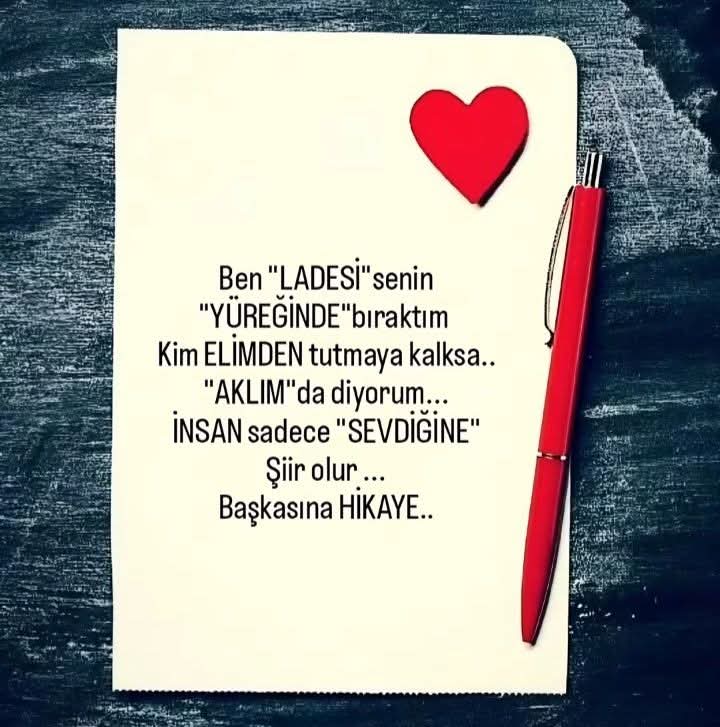 Ben "LADESİ"senin
"YÜREĞİNDE"bıraktım
Kim ELİMDEN tutmaya kalksa..
"AKLIM"da diyorum...
İNSAN sadece "SEVDİĞİNE"
Şiir olur ...
Başkasına HİKAYE..